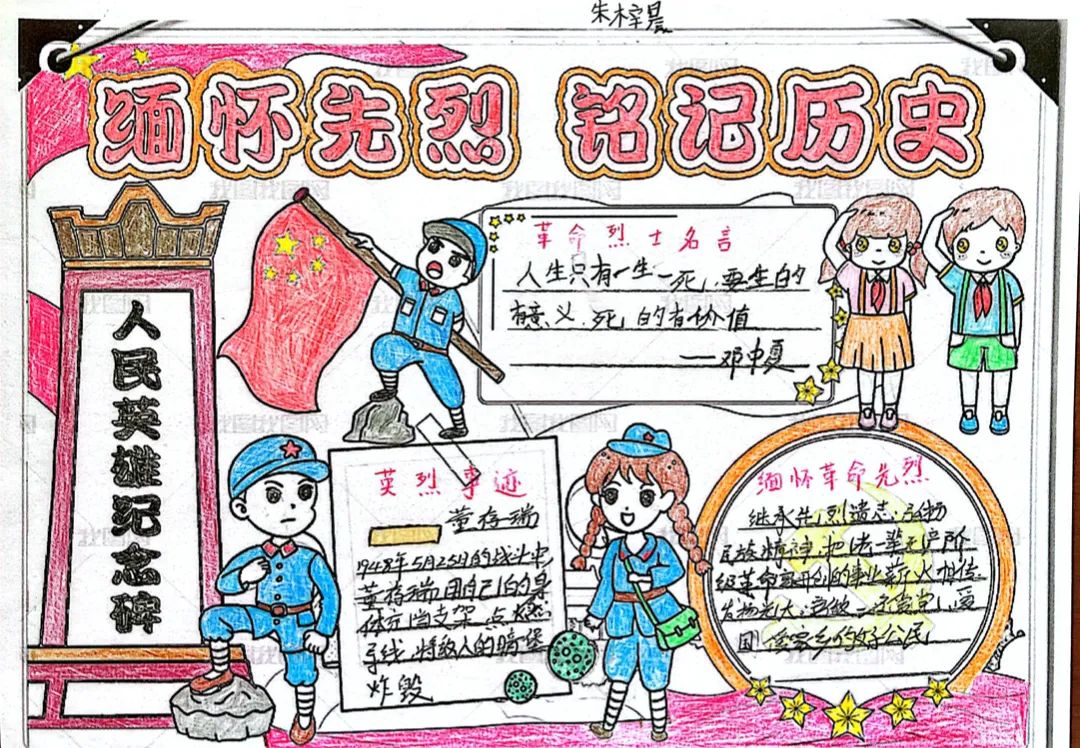 朱梓晨
缅怀先烈 铭记历史
人民英雄纪念碑
革命烈士名言
人生只有一生一死,要生的
有意义,死的有价值
——邓中夏
英烈事迹
董存瑞
1948年5月25日的战斗中,
董存瑞用自己的身
体充当支架,点燃
导线,将敌人的暗堡
炸毁
缅怀革命先烈
继承先烈遗志,弘扬
民族精神,把老一辈无产阶
级革命家开创的事业薪火相传
发扬光大,争做一个爱党、爱
国、爱家乡的好公民